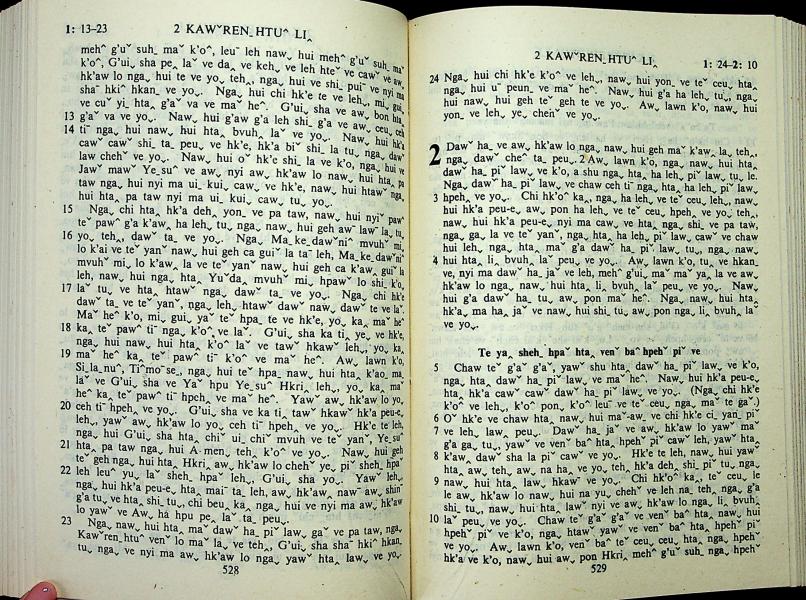 1: 13–23
2 KAWˇREN_HTUˆ LI‸
meh^ g'uˇ suh_ maˇ k'o^, leuˉ leh naw˯, hui meh^ g'uˇ suh_ maˇ
k'o^, G'ui˯ sha pe‸ laˇ ve da˯ ve keh˯ ve leh hteˇ ve cawˇ ve aw
hk'aw lo nga˯ hui te ve yo˯ teh‸, nga˯ hui ve shi_ puiˇ ve nyi ma
sha^ hki^ hkan_ ve yo˯. Nga˯ hui chi hk'e te ve leh˯, mi‸ gui‸
ve cuˇ yi_ hta‸ g'aˇ va ve maˇ he^. G'ui˯ sha ve aw˯ bon hta‸
13 g'aˇ va ve yo˯. Naw˯ hui g'aw g'a leh shi_ g'a ve aw˯ ceu˯ ceh
14 tiˉ nga˯ hui naw˯ hui hta‸ bvuh‸ laˇ ve yo˯. Naw˯ hui hk'a
cawˇ cawˇ shi_ ta_ peu˯ ve hk'e, hk'a biˇ shi_ la tu˯ nga˯ dawˇ
law chehˇ ve yo˯. Naw˯ hui oˇ hk'e shi_ la ve k'o, nga˯ hui ve
Jawˇ mawˇ Ye˯suˆ ve aw˯ nyi aw˯ hk'aw lo nawˇ hui hta‸ pa
taw nga˯ hui nyi ma ui_ kui˯ caw˯ ve hk'e, naw˯ hui htawˇ nga˯
hui hta‸ pa taw nyi ma ui_ kui˯ caw˯ tu˯ yo˯.
15 Nga˯ chi hta‸ hk'a deh‸ yon_ ve pa taw, naw˯ hui nyiˇ pawˇ
teˇ pawˇ g'a k'aw‸ ha leh˯ tu˯, nga˯ naw˯ hui geh awˇ lawˇ la˯ tu˯
16 yo˯ teh‸, dawˇ ta_ ve yo˯. Nga˯ Ma_ke_dawˇniˆ mvuhˇ mi˯
lo k'ai ve teˇ yanˇ naw˯ hui geh ca guiˇ la taˉ leh, Ma_ke_dawˇniˆ
mvuhˇ mi˯ lo k'aw‸ la ve teˇ yanˇ naw˯ hui geh ca k'aw‸ guiˇ la
leh, naw˯ hui nga˯ hta‸ Yuˇda‸ mvuhˇ mi˯ hpawˇ lo shi_ k'o‸
17 laˇ tu˯ ve hta‸ htawˇ nga˯ dawˇ ta_ ve yo˯. Nga˯ chi hk'e
dawˇ ta_ ve teˇ yanˇ, nga˯ leh‸ htawˇ dawˇ naw˯ dawˇ te ve laˇ.
Maˇ he^ k'o, mi‸ gui‸ yaˇ teˇ hpa_ te ve hk'e, yo‸ ka‸ maˇ he^
18 ka‸ teˇ pawˇ tiˉ nga˯ k'o^ ve laˇ. G'ui˯ sha ka ti‸ ye‸ ve hk'e,
nga˯ hui naw˯ hui hta‸ k'o^ laˇ ve tawˇ hkawˇ leh˯, yo‸ ka‸
19 maˇ he^ ka‸ teˇ pawˇ tiˉ k'o^ ve maˇ he^. Aw˯ lawn k'o,
Si_la_nuˆ, Tiˆmoˉse_, nga˯ hui teˇ hpa_ naw˯ hui hta‸ k'ao ma_
laˇ ve G'ui˯ sha ve Yaˇ hpu Ye˯suˆ Hkri˯ leh˯, yo‸ ka‸ maˇ
he^ ka‸ teˇ pawˇ tiˉ hpeh‸ ve maˇ he^. Yawˇ aw˯ hk'aw lo yo‸
20 ceh tiˉ hpeh‸ ve yo˯. G'ui˯ sha ve ka ti‸ tawˇ hkawˇ hk'a peu-e˯
leh˯, yawˇ aw˯ hk'aw lo yo‸ ceh tiˉ hpeh‸ ve yo˯. Hk'e te leh,
nga˯ hui G'ui˯ sha hta‸ chiˇ ui_ chiˇ mvuh ve teˇ yanˇ, Ye˯suˆ
21 hta‸ pa taw nga˯ hui A men_ teh‸ k'oˇ ve yo˯. Naw˯ hui geh
teˇ geh nga˯ hui hta‸ Hkri˯ aw˯ hk'aw lo chehˇ ve˯ piˇ sheh_ hpaˇ
22 leh leuˆ yu˯ laˇ sheh_ hpaˇ leh˯, G'ui˯ sha yo˯. Yawˇ leh˯
nga˯ hui hk'a peu-e hta‸ maiˉ ta_ leh, aw˯ hk'aw˯ nawˉ aw˯ shinˇ
g'a tu˯ ve hta‸ shi_ tu˯, chi beu˯ ka‸ nga˯ hui ve nyi ma aw˯ hk'aw
lo yawˇ ve Aw˯ ha hpu pe‸ laˇ ta_ peu˯.
23 Nga˯ naw˯ hui hta‸ maˇ dawˇ ha_ piˇ law˯ gaˇ ve pa taw, nga˯
Kawˇren_htuˆ venˇ lo maˇ la˯ ve teh‸, G'ui˯ sha sha^ hki^ hkan_
tu˯ nga˯ ve nyi ma aw˯ hk'aw lo nga˯ yawˇ hta‸ law˯ ve yo˯.
528
2 KAWˇREN_HTUˆ LI‸
1: 24–2: 10
24 Nga˯ hui chi hk'e k'oˇ ve leh˯, naw˯ hui yon_ ve teˇ ceu˯ hta‸
nga˯ hui uˉ peun_ ve maˇ he^. Naw˯ hui g'a ha leh˯ tu˯, nga˯
hui naw˯ hui geh teˇ geh te ve yo˯. Aw˯ lawn k'o, naw˯ hui
yon_ ve leh˯, ye‸ cheinˇ ve yo˯.
2 Dawˇ ha_ ve aw˯ hk'aw lo nga˯ naw˯ hui geh maˇ k'aw‸ la_ teh‸,
nga˯ dawˇ cheˆ ta_ peu˯. 2 Aw˯ lawn k'o, nga˯ naw˯ hui hta‸
dawˇ ha_ piˇ law˯ ve k'o, a shu nga˯ hta‸ ha leh˯ piˇ law˯ tu˯ le.
Nga˯ dawˇ ha_ piˇ law˯ ve chaw ceh tiˉ nga˯ hta‸ ha leh˯ piˇ law˯
3 hpeh‸ ve yo˯. Chi hk'oˆ ka‸, nga˯ ha leh˯ ve teˇ ceu˯ leh˯, naw˯
hui hk'a peu-e˯ aw˯ pon ha leh˯ ve teˇ ceu˯ hpeh‸ ve yo˯ teh‸,
naw˯ hui hk'a peu-e˯ nyi ma caw˯ ve hta‸ nga˯ shi_ ve pa taw,
nga˯ ga‸ la ve teˇ yanˇ, nga˯ hta‸ ha leh˯ piˇ law˯ cawˇ ve chaw
hui leh˯ nga˯ hta‸ maˇ g'a dawˇ ha_ piˇ law˯ tu˯ nga˯ naw˯
4 hui hta‸ li‸ bvuh‸ laˇ peu˯ ve yo˯. Aw˯ lawn k'o, tu˯ ve hkan_
ve, nyi ma dawˇ ha_ jaˇ ve leh˯ meh^ g'ui˯ ma^ maˇ ya‸ la ve aw˯
hk'aw lo nga˯ naw˯ hui hta‸ li‸ bvuh‸ laˇ peu˯ ve yo˯. Naw˯
hui g'a dawˇ ha_ tu˯ aw˯ pon maˇ he^. Nga˯ naw˯ hui hta‸
hk'a_ ma ha_ jaˇ ve naw˯ hui shi_ tu˯ aw˯ pon nga˯ li‸ bvuh‸ laˇ
ve yo˯.
Te ya‸ sheh_ hpaˇ hta‸ venˇ baˆ hpehˇ piˇ ve
5 Chaw teˇ g'aˇ g'aˇ, yawˇ shu hta‸ dawˇ ha_ piˇ law˯ ve k'o,
nga˯ hta‸ dawˇ ha_ piˇ law˯ ve maˇ he^. Naw˯ hui hk'a peu-e˯
hta‸ hk'a cawˇ cawˇ dawˇ ha_ piˇ law˯ ve yo˯. (Nga˯ chi hk'e
k'oˇ ve leh˯, k'oˇ pon_ k'oˇ leuˉ ve teˇ ceu˯ nga˯ maˇ te gaˇ.)
6 Oˇ hk'e ve chaw hta‸ naw˯ hui maˇ-aw˯ ve chi hk'e ci_ yan_ piˇ
7 ve leh˯ law˯ peu˯. Dawˇ ha_ jaˇ ve aw˯ hk'aw lo yawˇ maˇ
g'a ga˯ tu˯, yawˇ ve venˇ baˆ hta‸ hpehˇ piˇ cawˇ leh˯ yawˇ hta‸
8 k'aw‸ dawˇ sha la piˇ cawˇ ve yo˯. Hk'e te leh, naw˯ hui yawˇ
hta‸ aw˯ teh‸ aw˯ na ha˯ ve yo˯ teh‸ hk'a deh‸ shi_ piˇ tu˯ nga˯
9 naw˯ hui hta‸ law˯ hkawˇ ve yo˯. Chi hk'oˆ ka‸, te ceu˯ le
le aw˯ hk'aw lo naw˯ hui na yu˯ chehˇ ve leh na_ teh‸ nga˯ g'a
shi_ tu˯, naw˯ hui hta‸ nga˯ nyi ve aw˯ hk'aw lo nga˯ li‸ bvuh‸
10 laˇ peu˯ ve yo˯. Chaw teˇ g'aˇ g'aˇ ve venˇ baˆ hta‸ naw˯ hui
hpehˇ piˇ ve k'o, nga˯ htawˇ yawˇ ve venˇ baˆ hta‸ hpehˇ piˇ
ve yo˯. Aw˯ lawn k'o, venˇ baˆ teˇ ceu˯ ceu˯ hta‸ nga˯ hpehˇ
hk'a ve k'o, naw˯ hui aw˯ pon Hkri˯ meh^ g'uˇ suh_ nga˯ hpehˇ
529